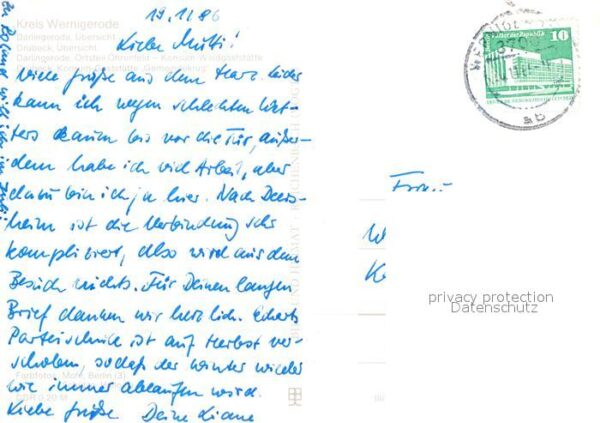 19.1.86
Kreis Wernigerode
Darlingerode, Übersicht
Drübeck, Übersicht
Darlingerode, Ortsteil Öhrenfeld – Konsum-Waldgaststätte
Drübeck, Konsum-Gaststätte
Liebe Mutti!
Viele Grüße aus dem Harz. Leider
kann ich wegen schlechten Wet-
ters kaum bis vor die Tür, außer-
dem habe ich viel Arbeit, aber
dazu bin ich ja hier. Nach Deers-
heim ist die Verbindung sehr
kompliziert, also wird aus dem
Besuch nichts. Für Deinen langen
Brief danken wir herzlich. Eckarts
Parteischule ist auf Herbst ver-
schoben, sodaß der Winter wieder
wie immer ablaufen wird.
Liebe Grüße Deine Liane
Farbfotos: Mohr, Berlin (3)
DDR 0,20 M
BILD UND HEIMAT
Palast der Republik
10
370
ab
Frau
privacy protection
Datenschutz